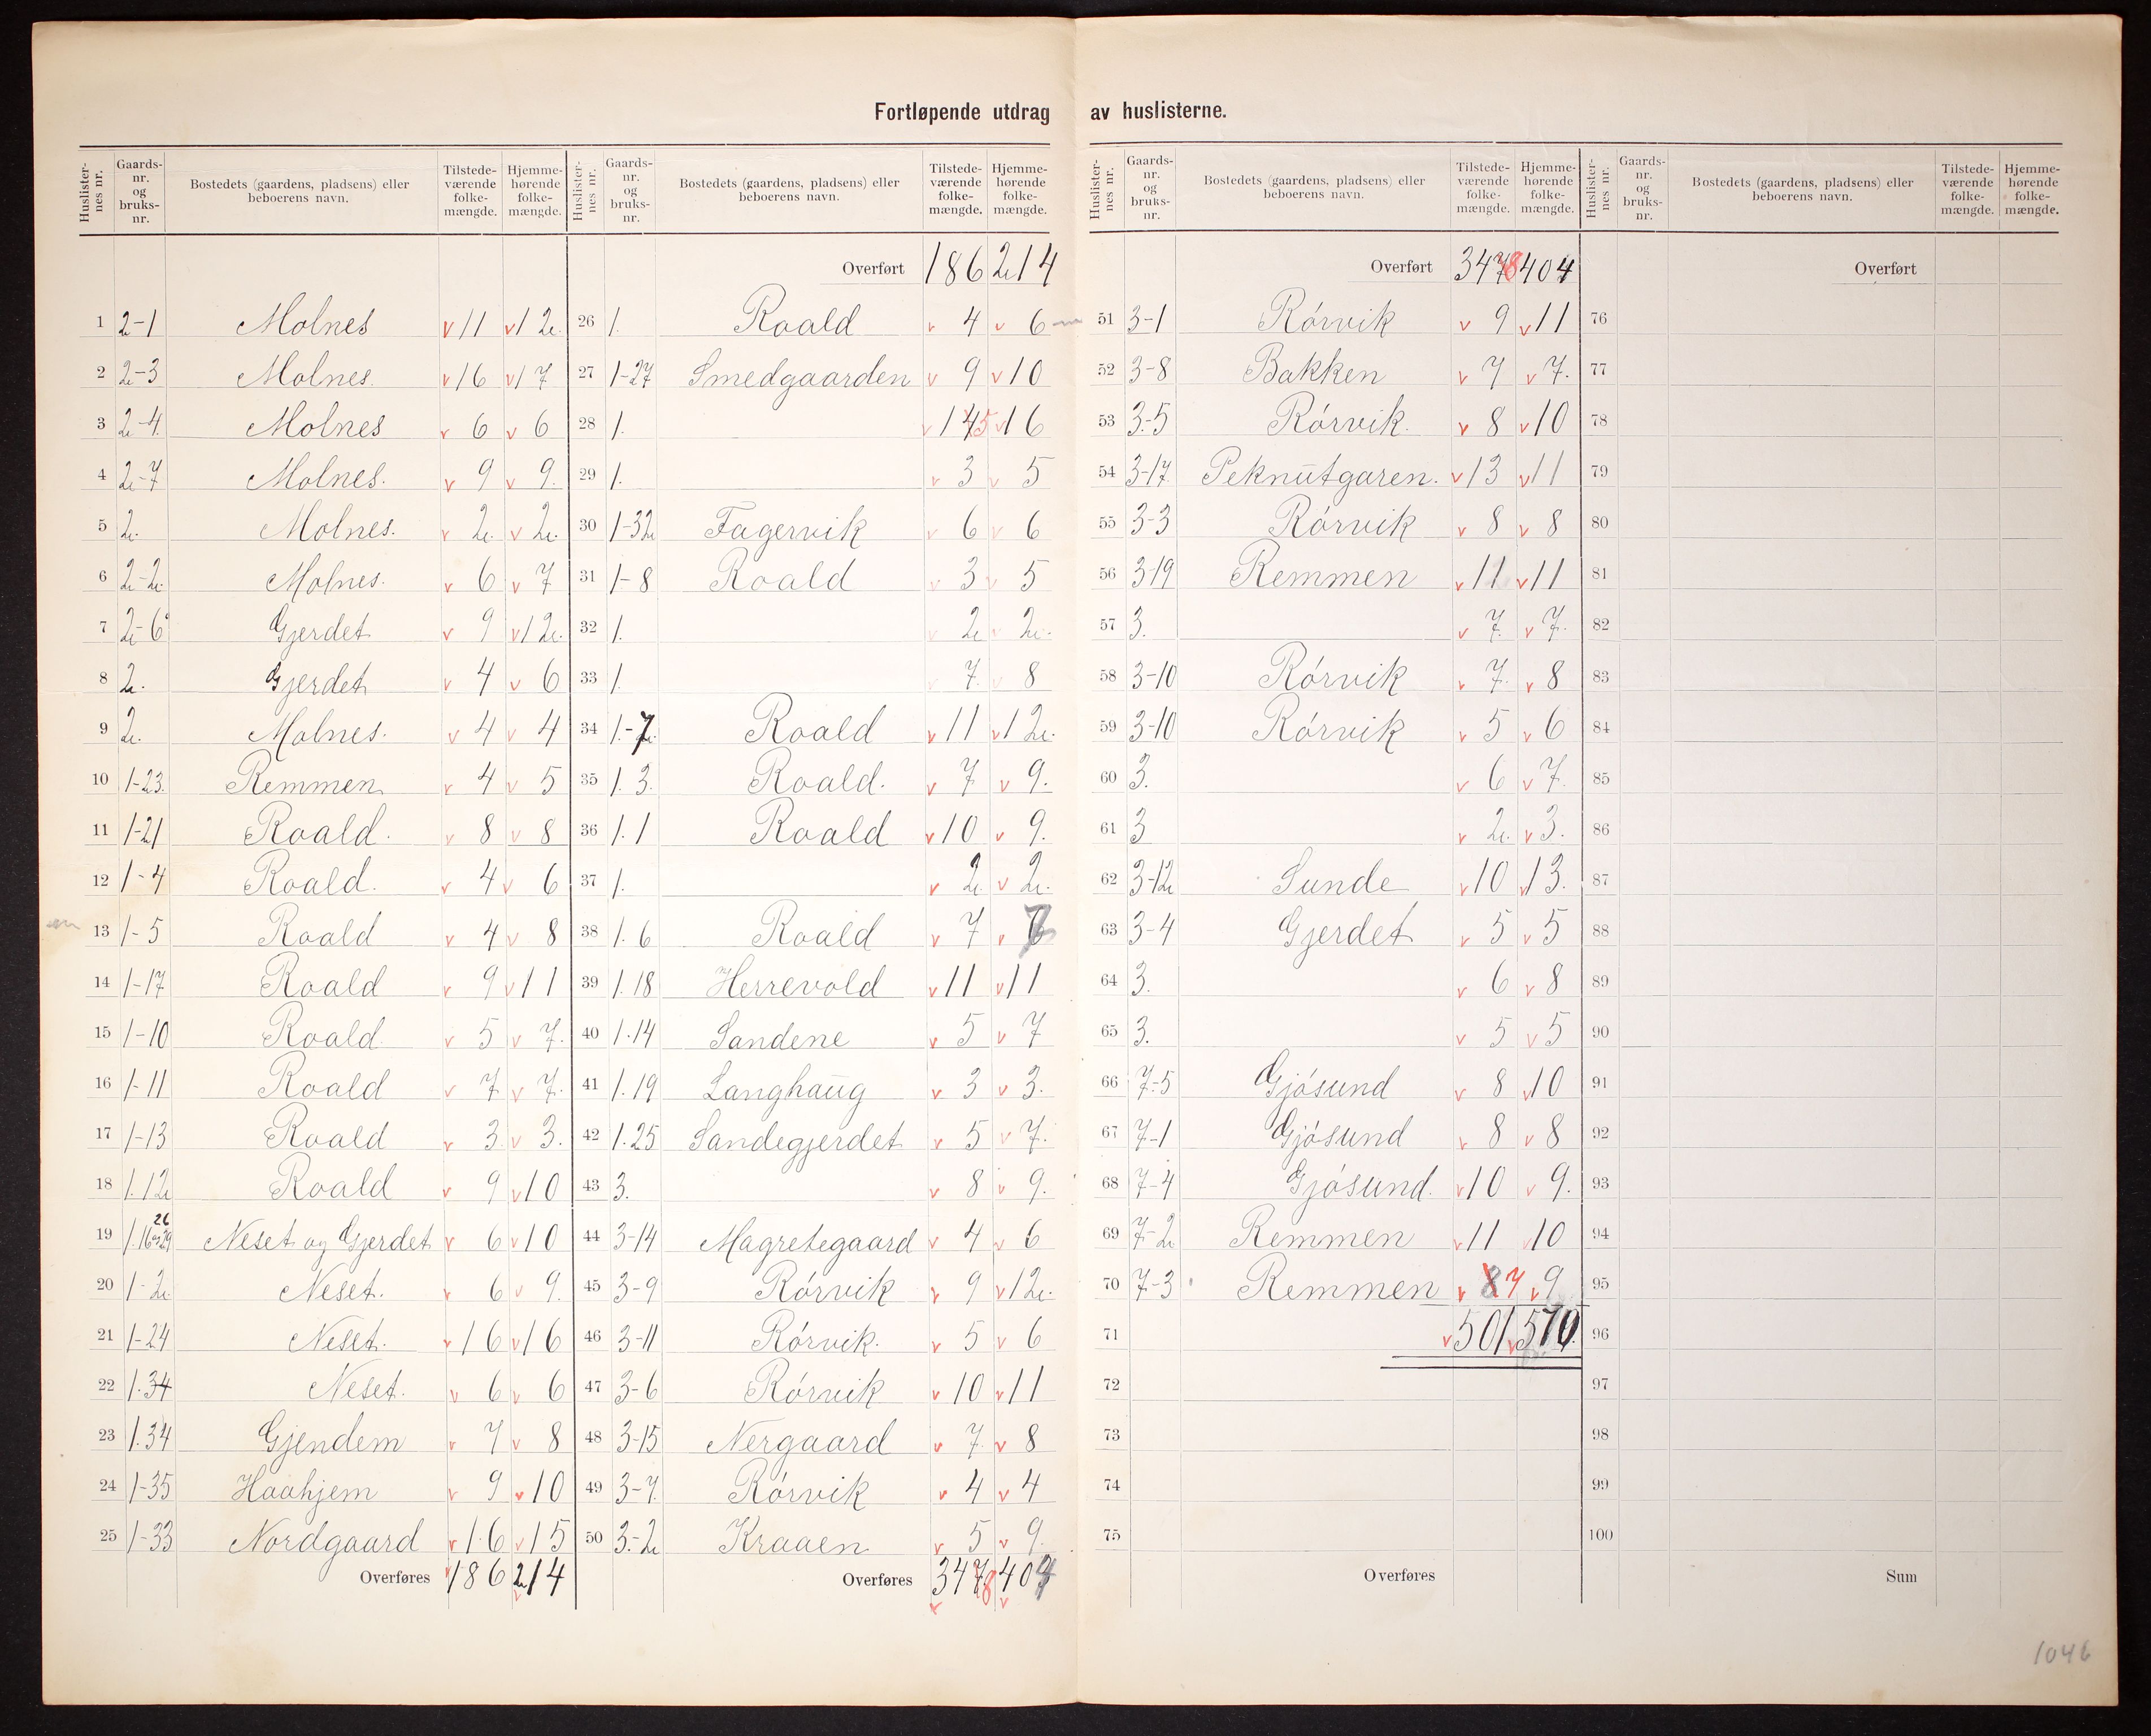 Fortløpende utdrag av huslisterne.
Huslister-nes nr. | Gaards-nr. og bruks-nr. | Bostedets (gaardens, pladsens) eller beboerens navn. | Tilstede-værende folke-mængde. | Hjemme-hørende folke-mængde.
1 2-1 Molnes v 11 v 12.
2 2-3 Molnes. v 16 v 17
3 2-4. Molnes v 6 v 6
4 2-7 Molnes. v 9 v 9.
5 2. Molnes. v 2. v 2.
6 2-2. Molnes. v 6 v 7
7 2-6 Gjerdet v 9 v 12.
8 2. Gjerdet v 4 v 6
9 2. Molnes. v 4 v 4
10 1-23. Remmen v 4 v 5
11 1-21 Roald. v 8 v 8
12 1-4 Roald. v 4 v 6
13 1-5 Roald v 4 v 8
14 1-17 Roald v 9 v 11
15 1-10 Roald. v 5 v 7.
16 1-11 Roald v 7 v 7.
17 1-13 Roald v 3 v 3.
18 1.12 Roald v 9 v 10
19 1.16 26 og 29 Neset og Gjerdet v 6 v 10
20 1-2. Neset. v 6 v 9.
21 1-24 Neset. v 16 v 16
22 1.34 Neset. v 6 v 6
23 1.34 Gjendem v 7 v 8
24 1-35 Haahjem v 9 v 10
25 1-33 Nordgaard v 16 v 15
Overføres v 186 214
Huslister-nes nr. | Gaards-nr. og bruks-nr. | Bostedets (gaardens, pladsens) eller beboerens navn. | Tilstede-værende folke-mængde. | Hjemme-hørende folke-mængde.
Overført 186 214
26 1. Roald v 4 v 6
27 1-27 Smedgaarden v 9 v 10
28 1. v 145 v 16
29 1. v 3 v 5
30 1-32 Fagervik v 6 v 6
31 1-8 Roald v 3 v 5
32 1. v 2 v 2.
33 1. v 7. v 8
34 1.-7. Roald v 11 v 12.
35 1.3. Roald. v 7 v 9.
36 1.1 Roald v 10 v 9.
37 1. v 2. v 2.
38 1.6 Roald v 7 v 7
39 1.18 Herrevold v 11 v 11
40 1.14 Sandene v 5 v 7
41 1.19 Langhaug v 3 v 3.
42 1.25 Sandegjerdet v 5 v 7.
43 3. v 8 v 9.
44 3-14 Magretegaard v 4 v 6
45 3-9 Rórvik v 9 v 12.
46 3-11 Rórvik. v 5 v 6
47 3-6 Rórvik v 10 v 11
48 3-15 Nergaard v 7. v 8
49 3-7. Rórvik v 4 v 4
50 3.-2 Kraaen v 5 v 9.
Overføres 3478 404
Huslister-nes nr. | Gaards-nr. og bruks-nr. | Bostedets (gaardens, pladsens) eller beboerens navn. | Tilstede-værende folke-mængde. | Hjemme-hørende folke-mængde.
Overført 3478 404
51 3-1 Rórvik v 9 v 11
52 3-8 Bakken v 7 v 7.
53 3.-5 Rórvik. v 8 v 10
54 3-17. Peknutgaren. v 13 v 11
55 3-3 Rórvik v 8 v 8
56 3-19 Remmen v 11 v 11
57 3. v 7. v 7.
58 3-10 Rórvik v 7. v 8
59 3-10 Rórvik v 5 v 6
60 3. v 6 v 7.
61 3 v 2. v 3.
62 3-12 Sunde v 10 v 13.
63 3-4 Gjerdet v 5 v 5
64 3. v 6 v 8
65 3. v 5 v 5
66 7.-5 Gjósund v 8 v 10
67 7-1 Gjósund v 8 v 8
68 7-4 Gjósund. v 10 v 9.
69 7-2 Remmen v 11 v 10
70 7-3 Remmen v 87 v 9
71 v 501 v 570.
72
73
74
75
Overføres
Huslister-nes nr. | Gaards-nr. og bruks-nr. | Bostedets (gaardens, pladsens) eller beboerens navn. | Tilstede-værende folke-mængde. | Hjemme-hørende folke-mængde.
Overført
76
77
78
79
80
81
82
83
84
85
86
87
88
89
90
91
92
93
94
95
96
97
98
99
100
Sum
1046